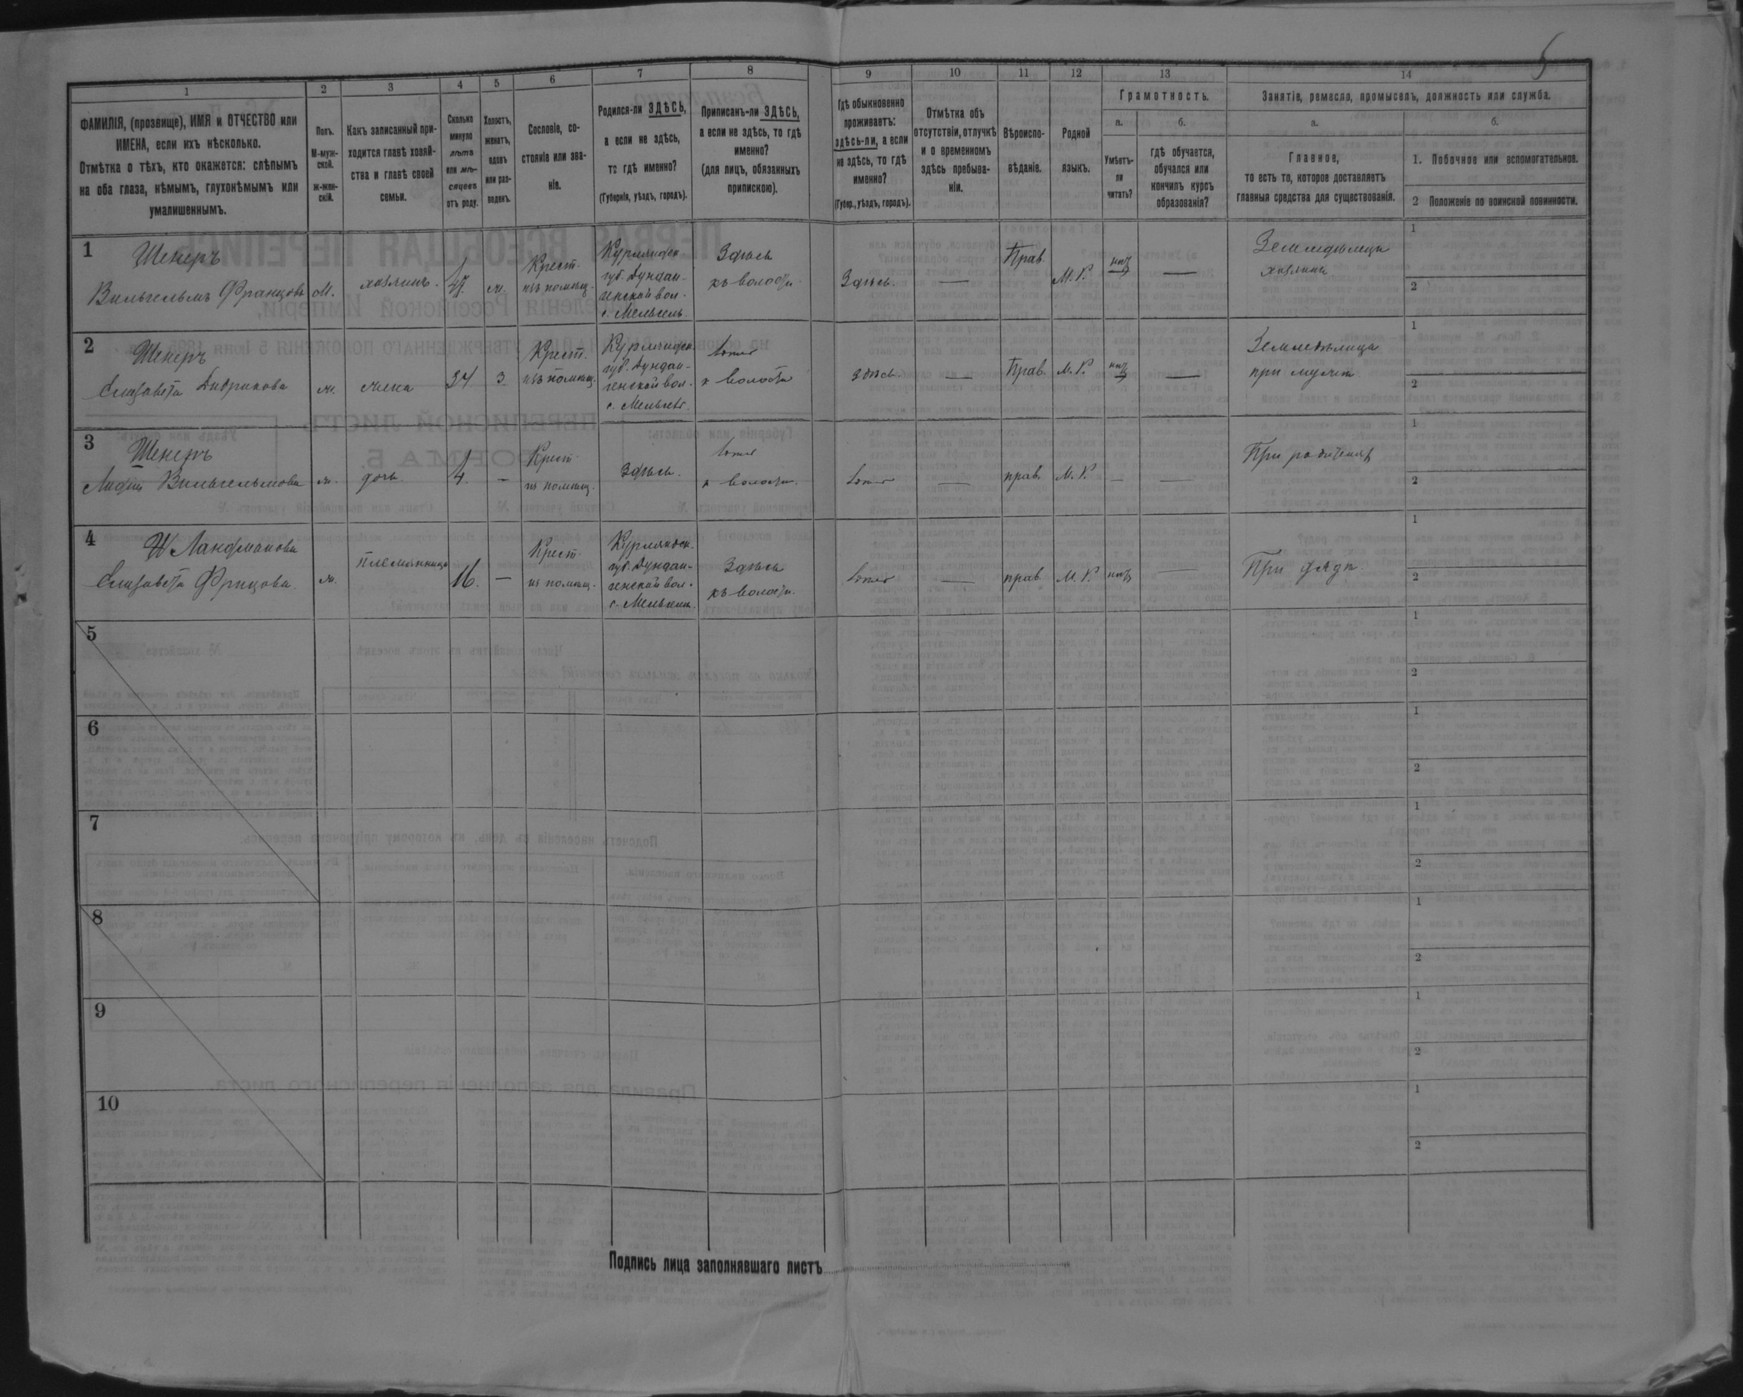 5
1
2
3
4
5
6
7
8
9
10
11
12
13
14
ФАМИЛІЯ, (прозвище), ИМЯ и ОТЧЕСТВО или
ИМЕНА, если ихъ нѣсколько.
Отмѣтка о тѣхъ, кто окажется: слѣпымъ
на оба глаза, нѣмымъ, глухонѣмымъ или
умалишеннымъ.
Полъ.
М-муж-
ской.
ж-жен-
скій.
Какъ записанный при-
ходится главѣ хозяй-
ства и главѣ своей
семьи.
Сколько
минуло
лѣтъ
или мѣ-
сяцевъ
отъ роду.
Холостъ,
женатъ,
вдовъ
или раз-
веденъ.
Сословіе, со-
стояніе или зва-
ніе.
Родился-ли ЗДѢСЬ,
а если не здѣсь,
то гдѣ именно?
(Губернія, уѣздъ, городъ).
Приписанъ-ли ЗДѢСЬ,
а если не здѣсь, то гдѣ
именно?
(для лицъ, обязанныхъ
припискою).
Гдѣ обыкновенно
проживаетъ:
здѣсь-ли, а если
не здѣсь, то гдѣ
именно?
(Губер., уѣздъ, городъ).
Отмѣтка объ
отсутствіи, отлучкѣ
и о временномъ
здѣсь пребыва-
ніи.
Вѣроиспо-
вѣданіе.
Родной
языкъ.
Грамотность.
а.
Умѣетъ-
ли
читать?
б.
гдѣ обучается,
обучался или
кончилъ курсъ
образованія?
Занятіе, ремесло, промыселъ, должность или служба.
а.
Главное,
то есть то, которое доставляетъ
главныя средства для существованія.
б.
1. Побочное или вспомогательное.
2 Положеніе по воинской повинности.
1
Шекеръ
Вильгельмъ Францовъ
М.
хозяинъ.
ж.
Крест.
изъ помѣщ.
Курляндск.
губ. Дундан-
генской вол.
с. Мельсель
Здѣсь
къ волости.
Здѣсь.
—
Прав
М. Р.
нѣтъ
—
Земледѣлецъ
хозяинъ
1
2
2
Шекеръ
Елизавета Дидрикова
ж.
жена
34
З
Крест.
изъ помѣщ.
Курляндск.
губ. Дундан-
генской вол.
с. Мельсель.
къ волости
здѣсь
—
Прав.
М. Р.
нѣтъ
—
Земледѣлица
при мужѣ
1
2
3
Шекеръ
Лидія Вильгельмова
ж.
дочь.
4.
—
Крест.
изъ помѣщ.
здѣсь.
къ волости.
—
прав.
М. Р.
—
—
При родителяхъ
1
2
4
Ланфманова
Елизавета Фрицова.
ж.
племянница
16.
—
Крест.
изъ помѣщ.
Курляндск.
губ. Дундан-
генской вол.
с. Мельсель.
Здѣсь
къ волости.
—
прав.
М. Р.
нѣтъ
—
При дядѣ
1
2
5
1
2
6
1
2
7
1
2
8
1
2
9
1
2
10
1
2
Подпись лица заполнявшаго листъ